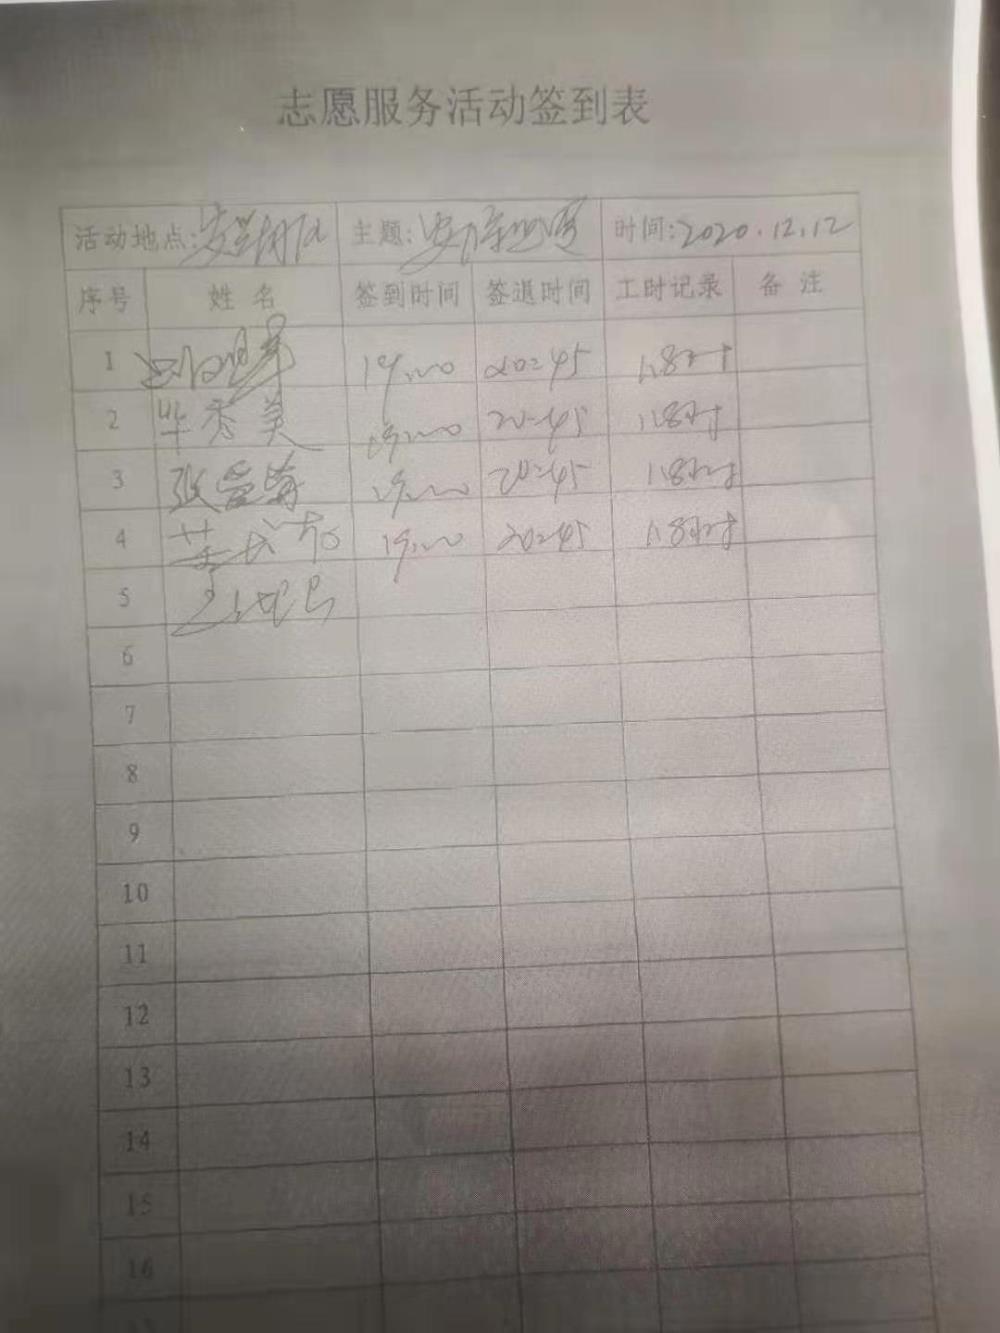 志愿服务活动签到表
活动地点: 主题: 时间:2020.12.12
序号 姓名 签到时间 签退时间 工时记录 备注
1 19:00 20:45 1.8小时
2 华秀美 19:00 20:45 1.8小时
3 张 19:00 20:45 1.8小时
4 19:00 20:45 1.8小时
5
6
7
8
9
10
11
12
13
14
15
16